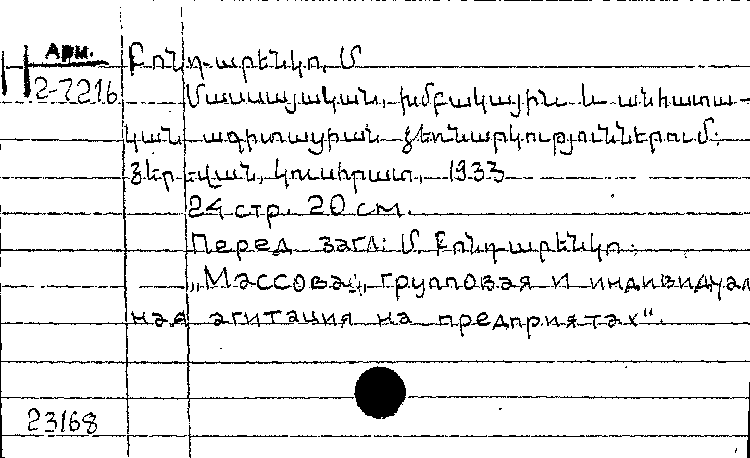 Арм.
2-7216
Բոնդարենկո, Մ
Մասսայական, խմբակային և անհատա-
կան ագիտացիան ձեռնարկություններում:
Յերևան, Կուսհրատ, 1933
24 стр. 20 см.
Перед загл: Մ. Բոնդարենկո.
„Массовая, групповая и индивидуал
ная агитация на предприятах“.
23168